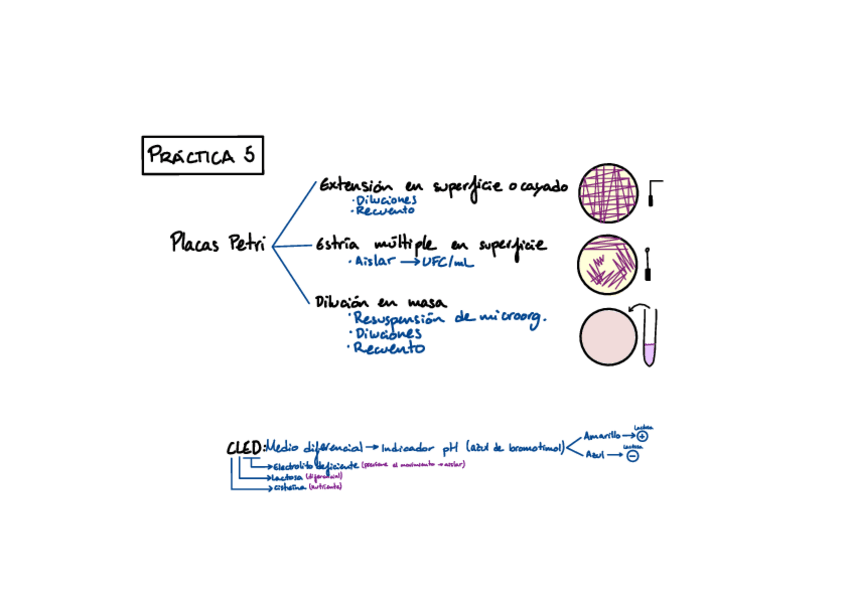 PRÁCTICA 5
Placas Petri
Extensión en superficie o cayado
· Diluciones
· Recuento
Estría múltiple en superficie
· Aislar → UFC/mL
Dilución en masa
· Resuspensión de microorg.
· Diluciones
· Recuento
CLED: Medio diferencial → Indicador pH (azul de bromotimol)
Lactosa
Amarillo → +
Lactosa
Azul → −
→ Electrolito deficiente (previene el movimiento → aislar)
→ Lactosa (diferencial)
→ cisteína (nutriente)